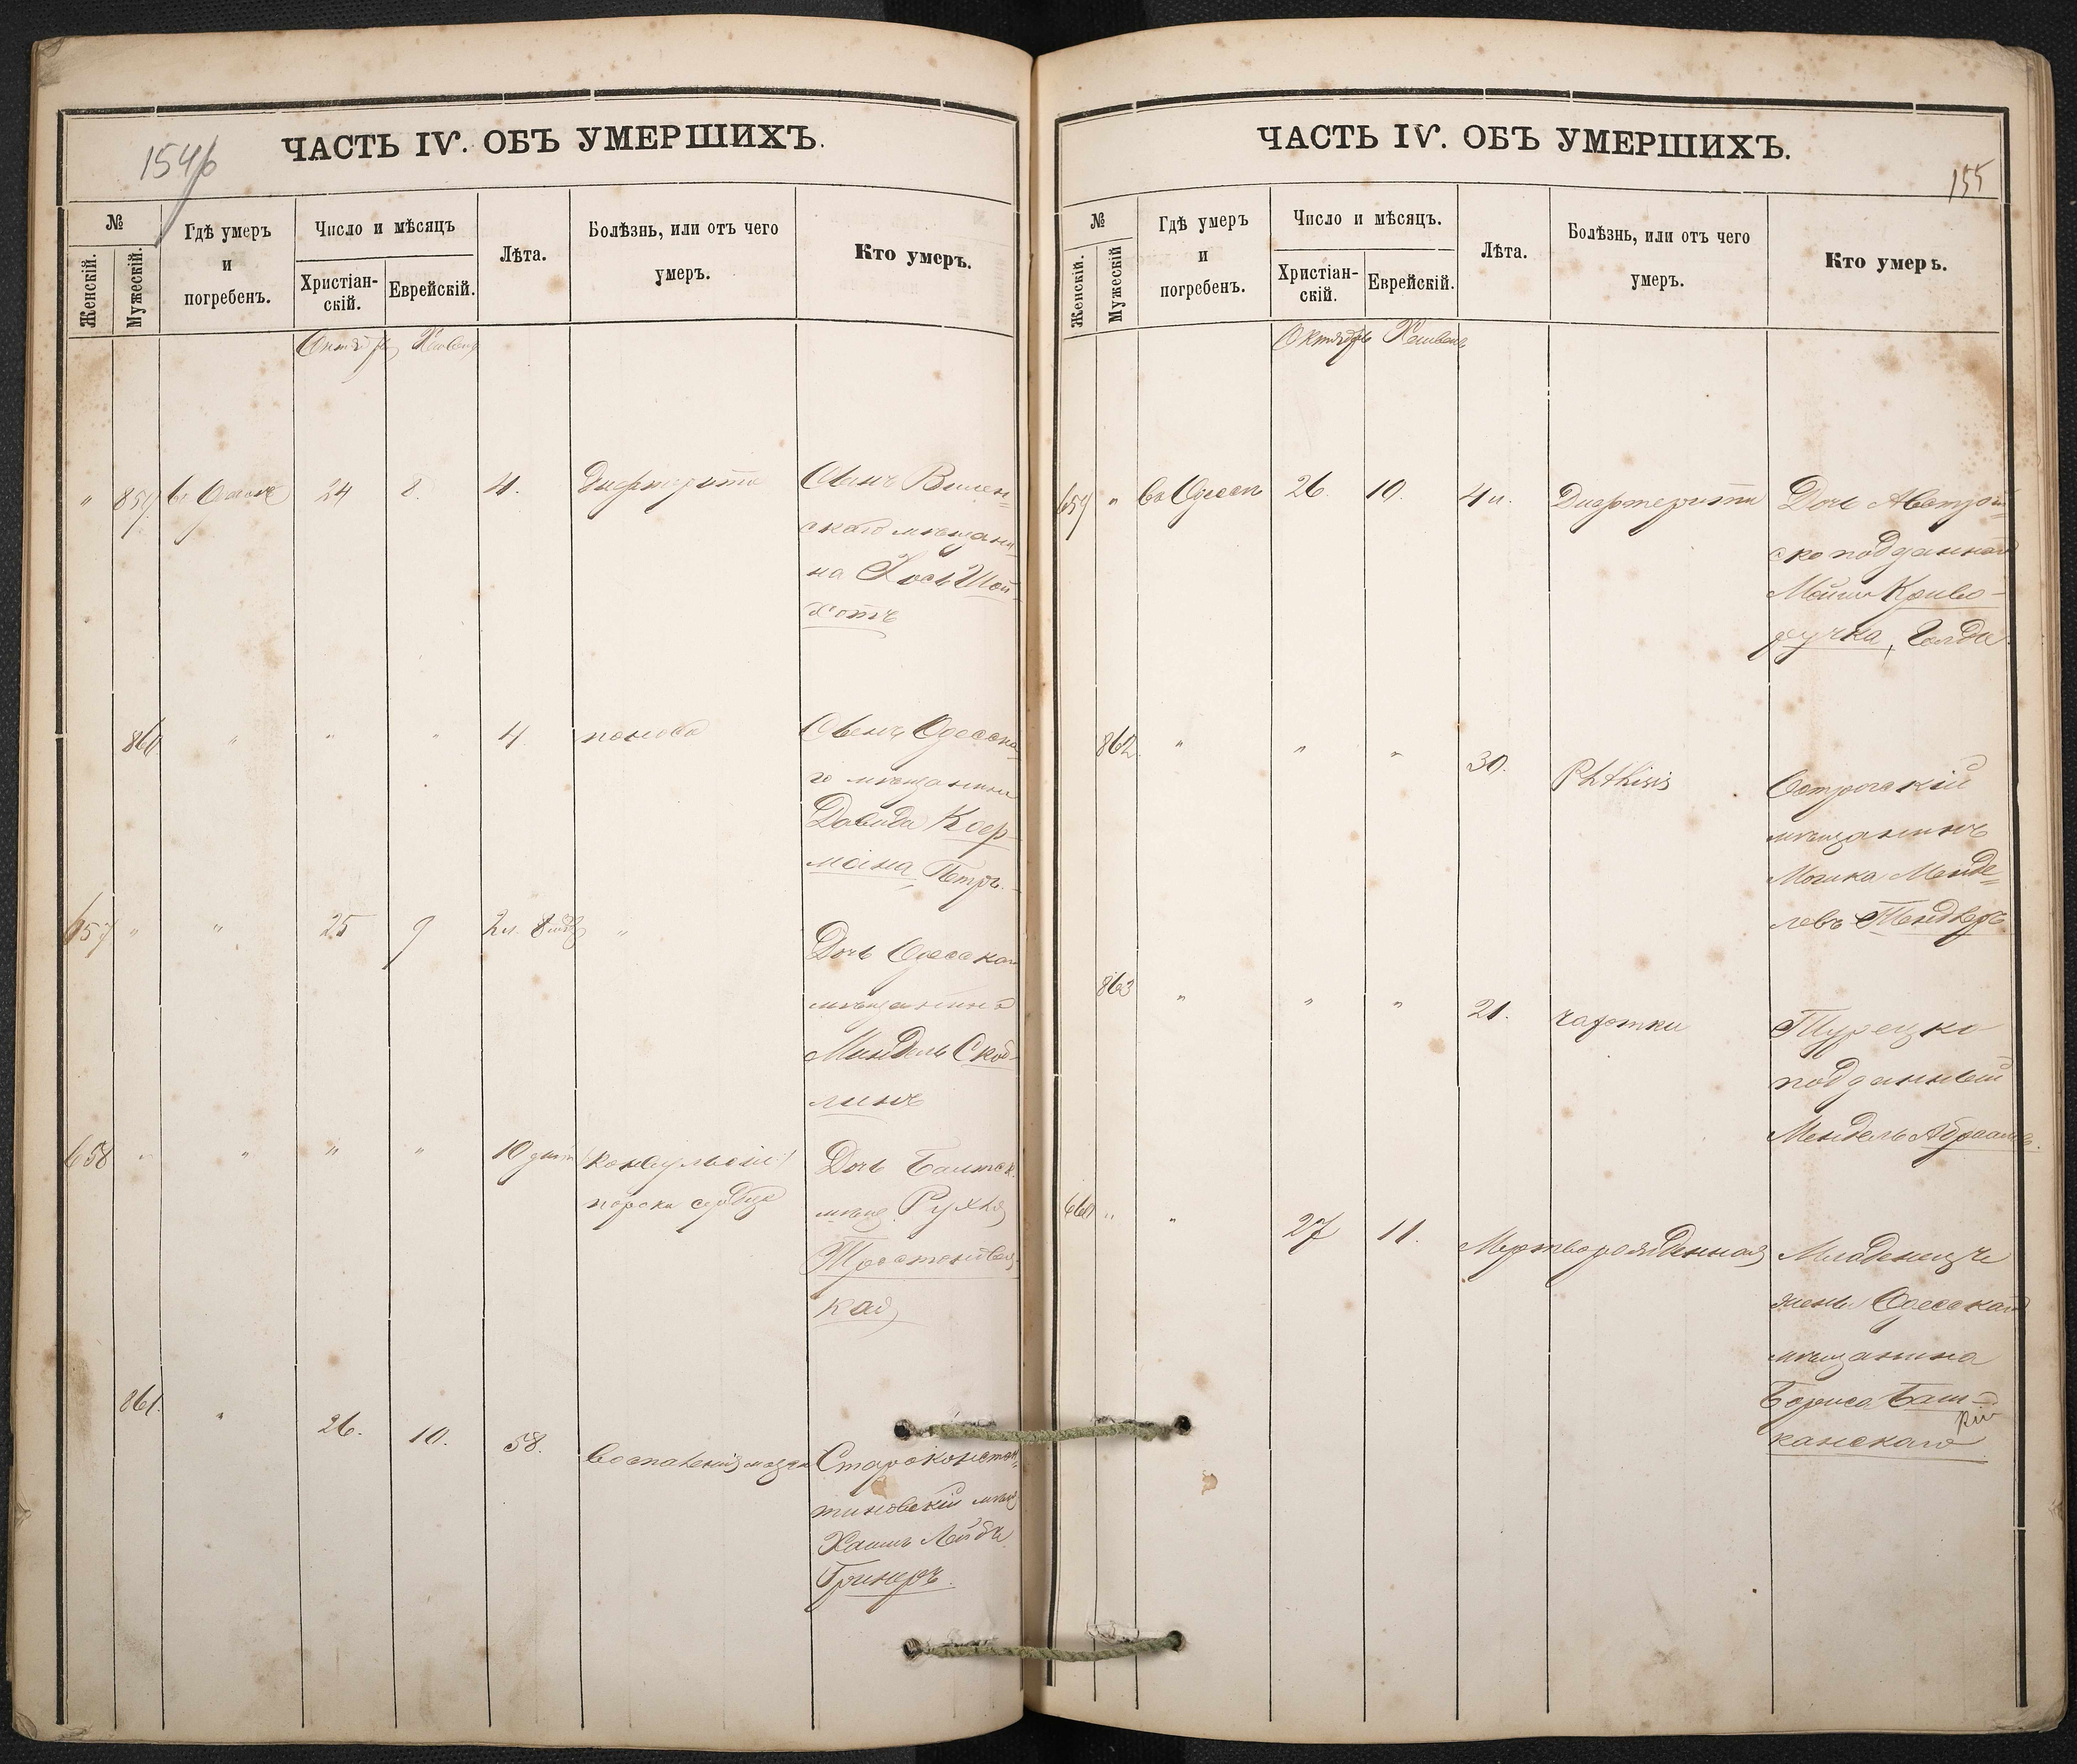 154б
ЧАСТЬ IV. ОБЪ УМЕРШИХЪ.
№
Женскій.
Мужескій.
Гдѣ умеръ
и
погребенъ.
Число и мѣсяцъ
Христіан-
скій.
Еврейскій.
Лѣта.
Болѣзнь, или отъ чего
умеръ.
Кто умеръ.
Октябрь
" 859 24 8. 4. Дифтерита Сынъ Вилен=
скаго мѣщани-
на Іось Шой-
хотъ
860 " " " 4 поноса Сынъ Одесска-
го мѣщанина
Давида Коер-
мана, Петръ.
657 " " 25 9 2 л. 8 "
Дочь Одесскаго
мѣщанина
Мендель Скоб-
линъ
658 " " " " 10 дней
Дочь
мѣщ. Рухля
кая
861. " 26. 10. 58. Воспаленія мозга Староконстан=
тиновскій мѣщ
Хаимъ Лейба
Гринеръ.
ЧАСТЬ IV. ОБЪ УМЕРШИХЪ.
155
№
Женскій.
Мужескій
Гдѣ умеръ
и
погребенъ.
Число и мѣсяцъ.
Христіан-
скій.
Еврейскій.
Лѣта.
Болѣзнь, или отъ чего
умеръ.
Кто умеръ.
Октябрь Хешвенъ
659 " Въ Одессѣ 26. 10. 4 л. Дифтерита Дочь Австрій=
ско подданнаго
Мошко Криво-
ручка, Голда
862 " " " 30. Phthisis Острогскій
мѣщанинъ
Мошко Менде=
левъ
863 " " " 21. чахотки Турецко
подданный
Мендель Абрамовъ.
660 " " 27 11. Мертворожденная Младенецъ
жены Одесскаго
мѣщанина
Бориса Баш-
канскаго